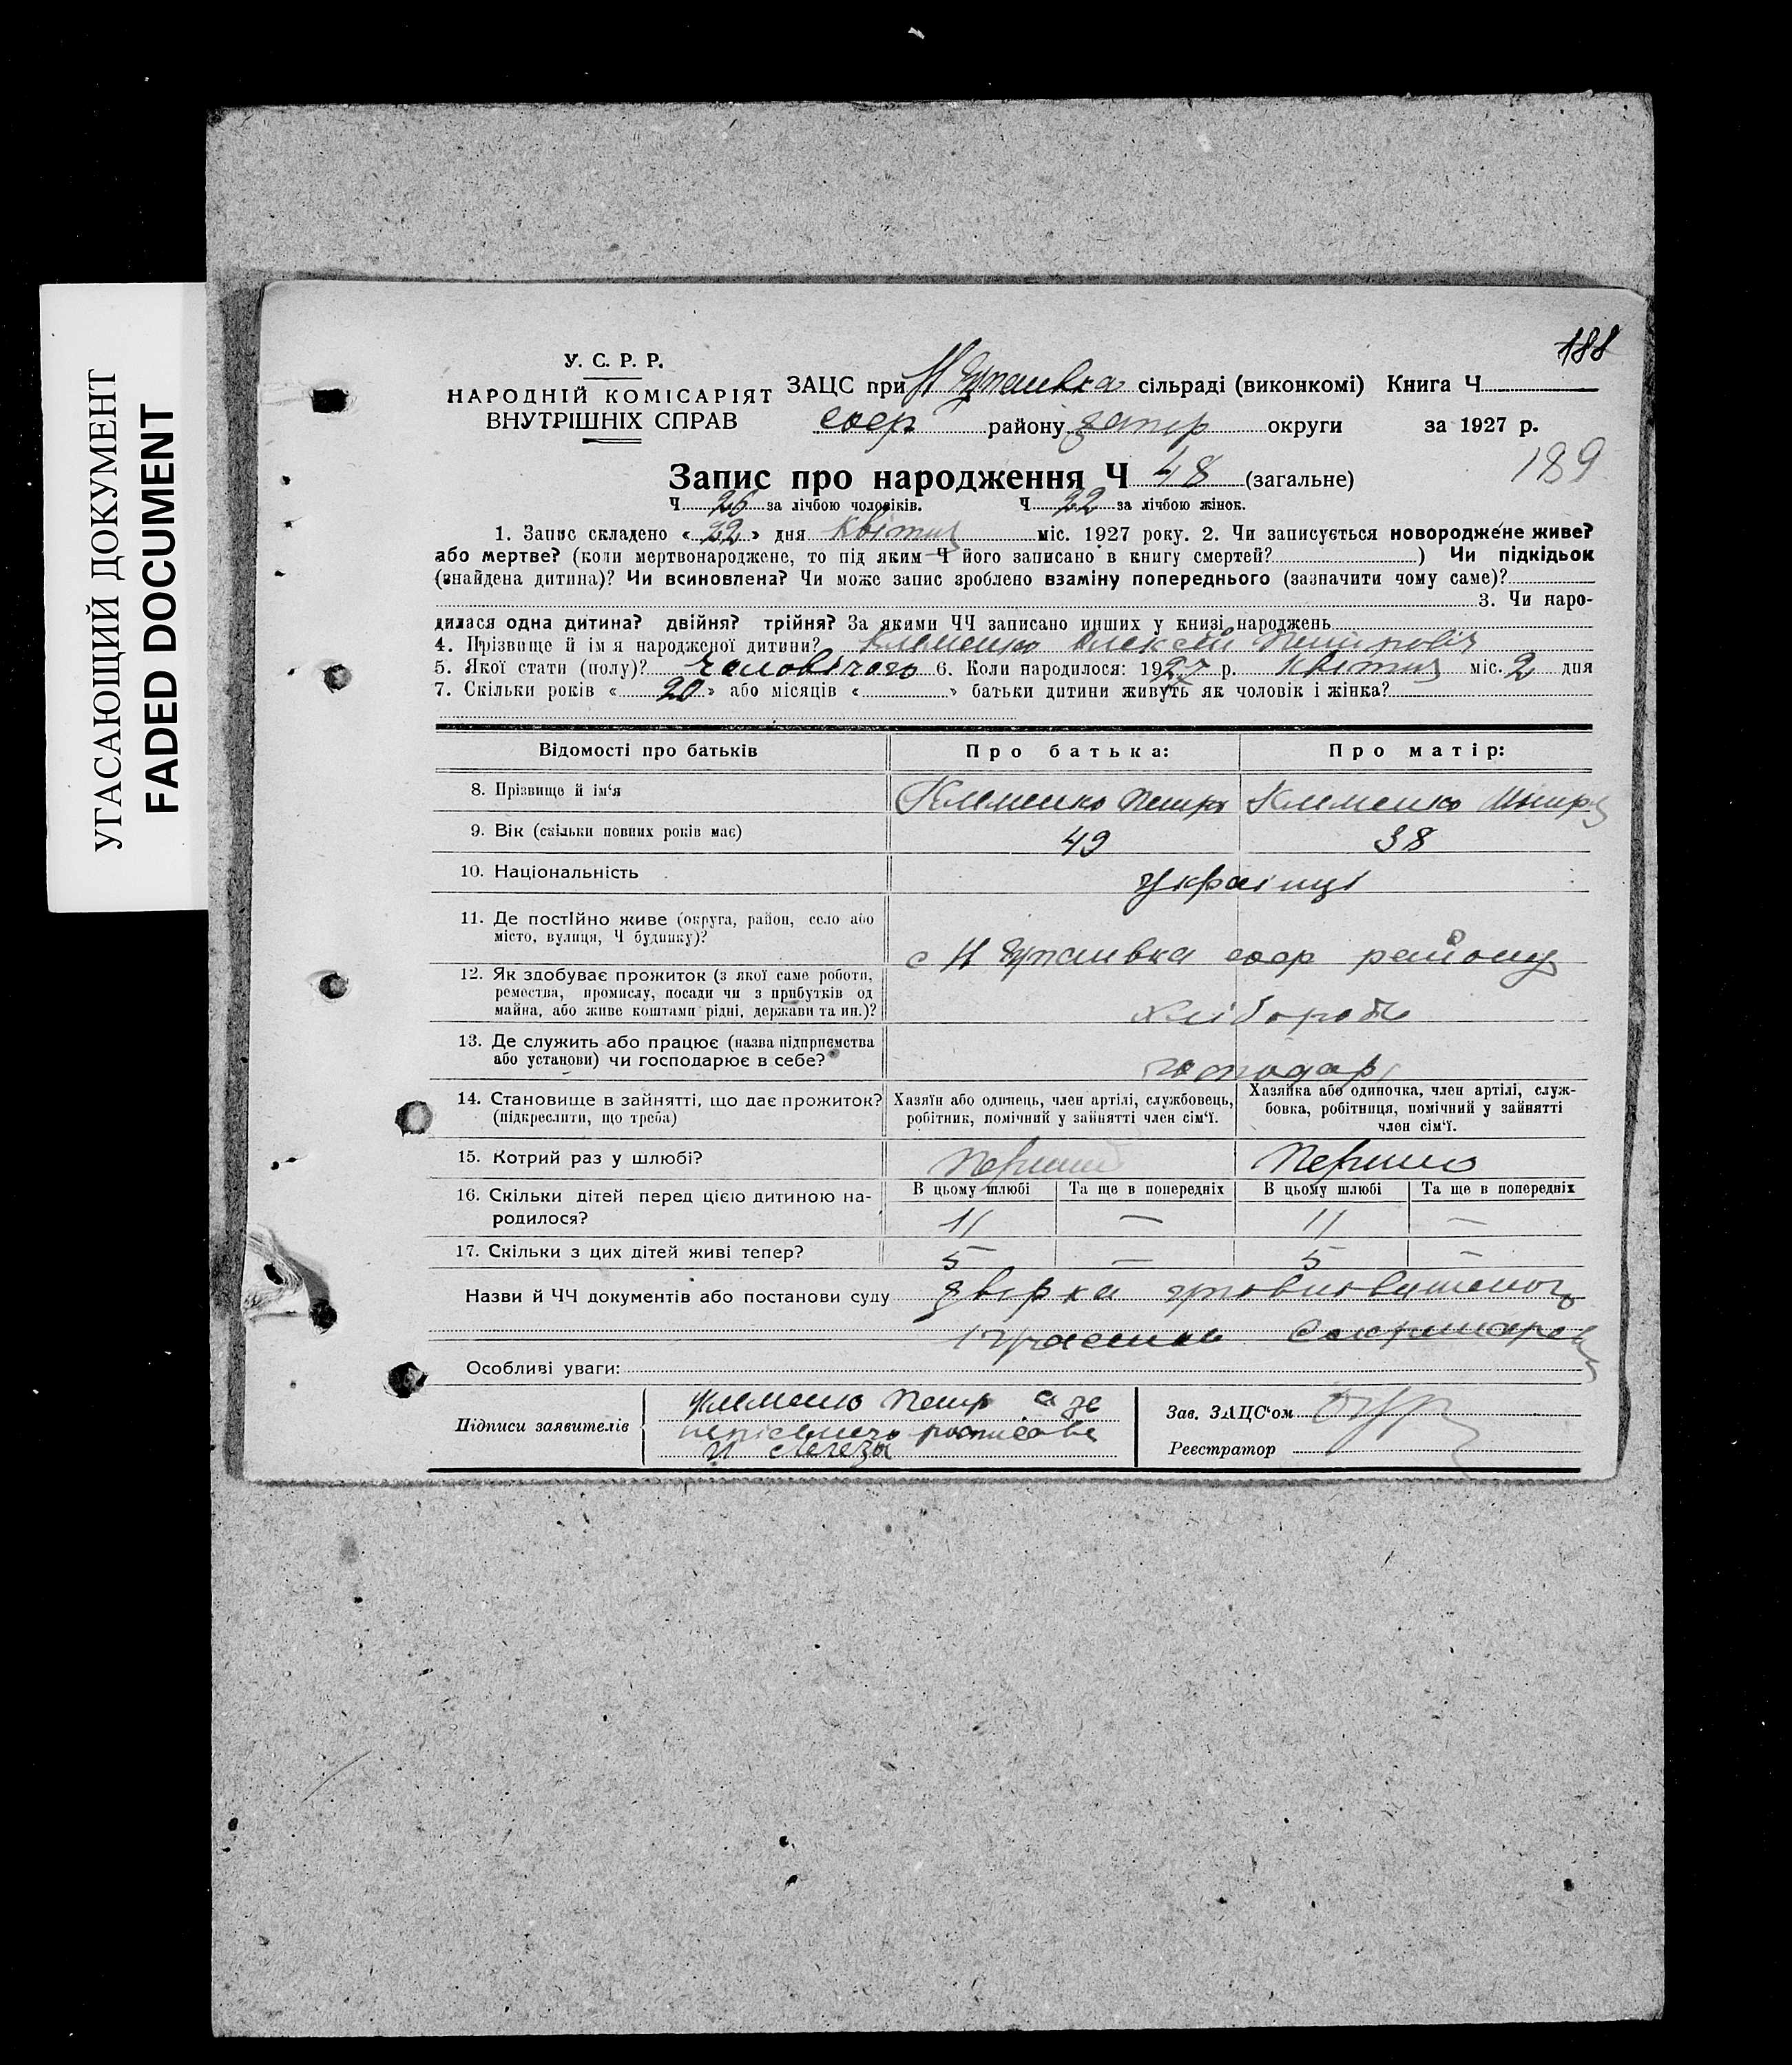 УГАСАЮЩИЙ ДОКУМЕНТ
FADED DOCUMENT
188
У. С. Р. Р.
НАРОДНІЙ КОМІСАРІЯТ
ВНУТРІШНІХ СПРАВ
ЗАЦС при сільраді (виконкомі) Книга Ч
району округи за 1927 р.
189
Запис про народження Ч 48 (загальне)
Ч 26 за лічбою чоловіків. Ч 22 за лічбою жінок.
1. Запис складено « 22 » дня квітня міс. 1927 року. 2. Чи записується новороджене живе?
або мертве? (коли мертвонароджене, то під яким Ч його записано в книгу смертей? ) Чи підкідьок
(знайдена дитина)? Чи всиновлена? Чи може запис зроблено взаміну попереднього (зазначити чому саме)?
3. Чи наро-
дилася одна дитина? двійня? трійня? За якими ЧЧ записано инших у книзі народжень
4. Прізвище й ім я народженої дитини? Клименко Олексій Петровіч
5. Якої стати (полу)? Чоловічого 6. Коли народилося: 1927 р. квітня міс. 2 дня
7. Скільки років « 20 » або місяців « » батьки дитини живуть як чоловік і жінка?
Відомості про батьків Про батька: Про матір:
8. Прізвище й ім‘я Клименко Петро Клименко
9. Вік (скільки повних років має) 49 38
10. Національність українці
11. Де постійно живе (округа, район, село або
місто, вулиця, Ч будинку)? с району
12. Як здобуває прожиток (з якої саме роботи,
ремества, промислу, посади чи з прибутків од
майна, або живе коштами рідні, держави та ин.)? хлібороби
13. Де служить або працює (назва підприємства
або установи) чи господарює в себе? господарі
14. Становище в зайнятті, що дає прожиток?
(підкреслити, що треба)
Хазяїн або одинець, член артілі, службовець,
робітник, помічний у зайнятті член сім‘ї.
Хазяйка або одиночка, член артілі, служ-
бовка, робітниця, помічний у зайнятті
член сім‘ї.
15. Котрий раз у шлюбі? Перший Перший
16. Скільки дітей перед цією дитиною на-
родилося?
В цьому шлюбі Та ще в попередніх В цьому шлюбі Та ще в попередніх
11 — 11 —
17. Скільки з цих дітей живі тепер? 5 — 5 —
Назви й ЧЧ документів або постанови суду
Особливі уваги:
Підписи заявителів
Клименко Петр а за
Зав. ЗАЦС‘ом
Реєстратор